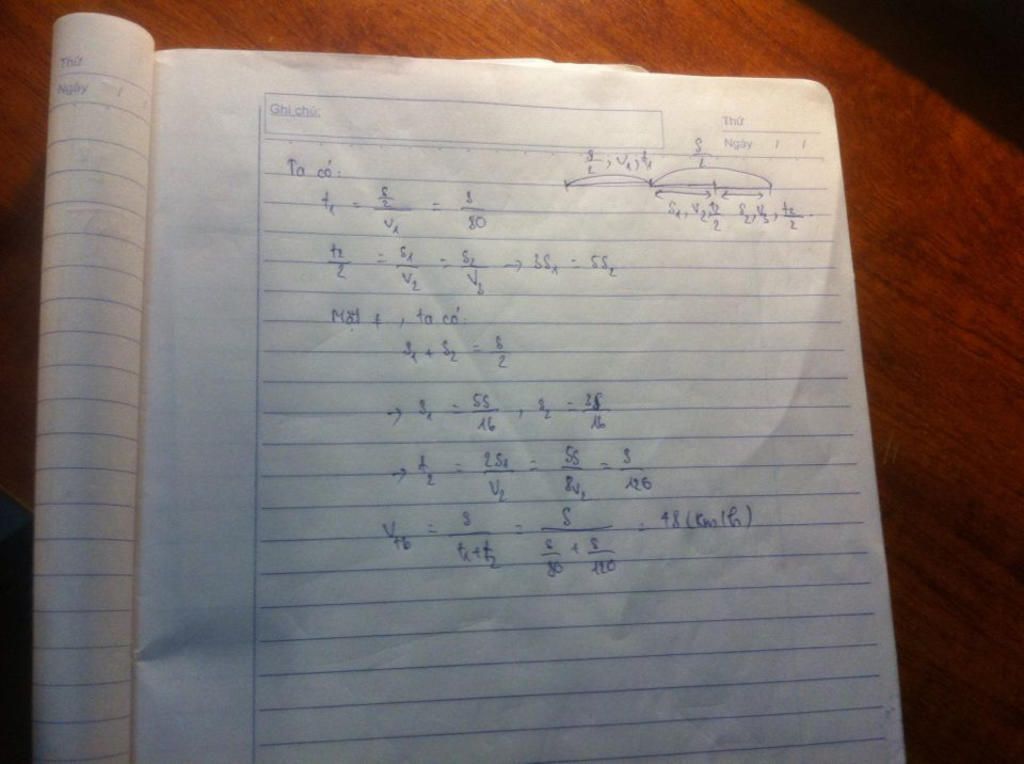 Thứ
Ngày / /
Ghi chú:
Thứ
Ngày / /
S/2, V₁, t₁ S/2
S₁, V₂, t₂/2 S₂, V₃, t₂/2
Ta có:
t₁ = (S/2)/V₁ = S/80
t₂/2 = S₁/V₂ = S₂/V₃ → 3S₁ = 5S₂
Mặt ≠, ta có:
S₁ + S₂ = S/2
→ S₁ = 5S/16, S₂ = 3S/16
→ t₂ = 2S₁/V₂ = 5S/8V₂ = S/120
Vtb = S/(t₁+t₂) = S/(S/80 + S/120) = 48 (km/h)